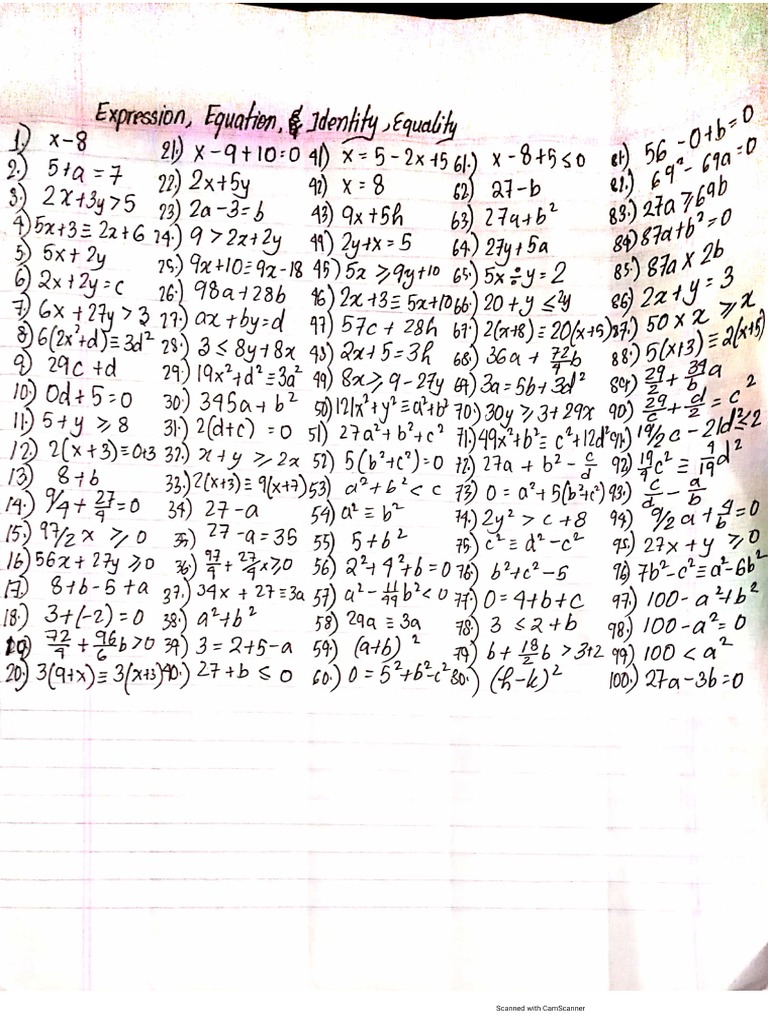 Expression, Equation, & Identity, Equality
1.) x-8
2.) 5+a = 7
3.) 2x+3y>5
4.) 5x+3 ≡ 2x+6
5.) 5x + 2y
6.) 2x+2y=c
7.) 6x + 27y > 3
8.) 6(2x²+d) ≡ 3d²
9.) 29c + d
10.) 0d+5=0
11.) 5+y ≥ 8
12.) 2(x+3) ≡ 0+3
13.) 8+b
14.) 9/4 + 27/9 = 0
15.) 97/2 x ≥ 0
16.) 56x + 27y ≥ 0
17.) 8+b-5+a
18.) 3+(-2) = 0
19.) 72/9 + 96/6 b>0
20.) 3(9+x) ≡ 3(x+3)
21.) x-9+10=0
22.) 2x+5y
23.) 2a-3=b
24.) 9 > 2x+2y
25.) 9x+10 ≡ 9x-18
26.) 98a+28b
27.) ax+by=d
28.) 3 ≤ 8y+8x
29.) 19x²+d² ≡ 3a²
30.) 345a+b²
31.) 2(d+c) = 0
32.) x+y ≥ 2x
33.) 2(x+3) ≡ 9(x+7)
34.) 27-a
35.) 27-a=35
36.) 97/9 + 27/9 x ≥ 0
37.) 34x + 27 ≡ 3a
38.) a²+b²
39.) 3 = 2+5-a
40.) 27+b ≤ 0
41.) x = 5-2x+5
42.) x = 8
43.) 9x+5h
44.) 2y+x = 5
45.) 5x ≥ 9y+10
46.) 2x+3 ≡ 5x+10
47.) 57c + 28h
48.) 2x+5=3h
49.) 8x ≥ 9-27y
50.) 121x²+y² ≡ a²+b²
51.) 27a²+b²+c²
52.) 5(b²+c²)=0
53.) a²+b² < c
54.) a² ≡ b²
55.) 5+b²
56.) 2²+4²+b=0
57.) a² - 11/99 b² < 0
58.) 29a ≡ 3a
59.) (a+b)²
60.) 0=5²+b²-c²
61.) x-8+5 ≤ 0
62.) 27-b
63.) 27a+b²
64.) 27y+5a
65.) 5x÷y=2
66.) 20+y ≤ 2y
67.) 2(x+8) ≡ 20(x+5)
68.) 36a + 72/9 b
69.) 3a=5b+3d²
70.) 30y ≥ 3+29x
71.) 49x²+b² ≡ c²+12d²
72.) 27a + b² - c/d
73.) 0=a²+5(b²+c²)
74.) 2y² > c+8
75.) c² ≡ d²-c²
76.) b²+c²-5
77.) 0=4+b+c
78.) 3 ≤ 2+b
79.) b + 18/2 b > 3+2
80.) (h-k)²
81.) 56-0+b=0
82.) 69²-69a=0
83.) 27a ≥ 69b
84.) 87a+b²=0
85.) 87a x 2b
86.) 2x+y=3
87.) 50 x x ≥ x
88.) 5(x+3) ≡ 2(x+5)
89.) 29/2 + 39/2 a
90.) 29/c + d/2 = c²
91.) 19/2 c - 21d² ≤ 2
92.) 19/9 c² ≡ 9/19 d²
93.) c/d - a/b
94.) 9/2 a + 4/6 = 0
95.) 27x+y ≥ 0
96.) 7b²-c² ≡ a²-6b²
97.) 100-a²+b²
98.) 100-a²=0
99.) 100 < a²
100.) 27a-3b=0
Scanned with CamScanner